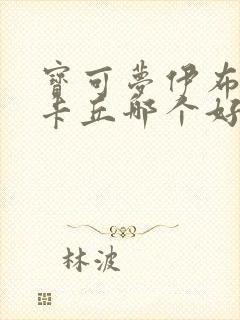 寶可夢伊布
卡丘哪个好
林波